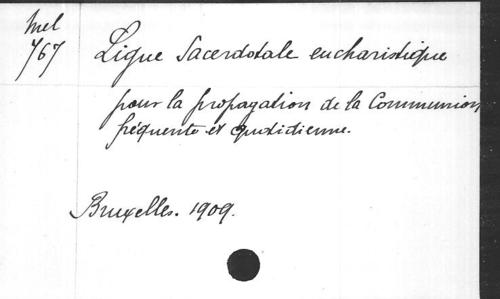 Mel
767
Ligue Sacerdotale eucharistique
pour la propagation de la Communion
fréquente et quotidienne.
Bruxelles. 1909.